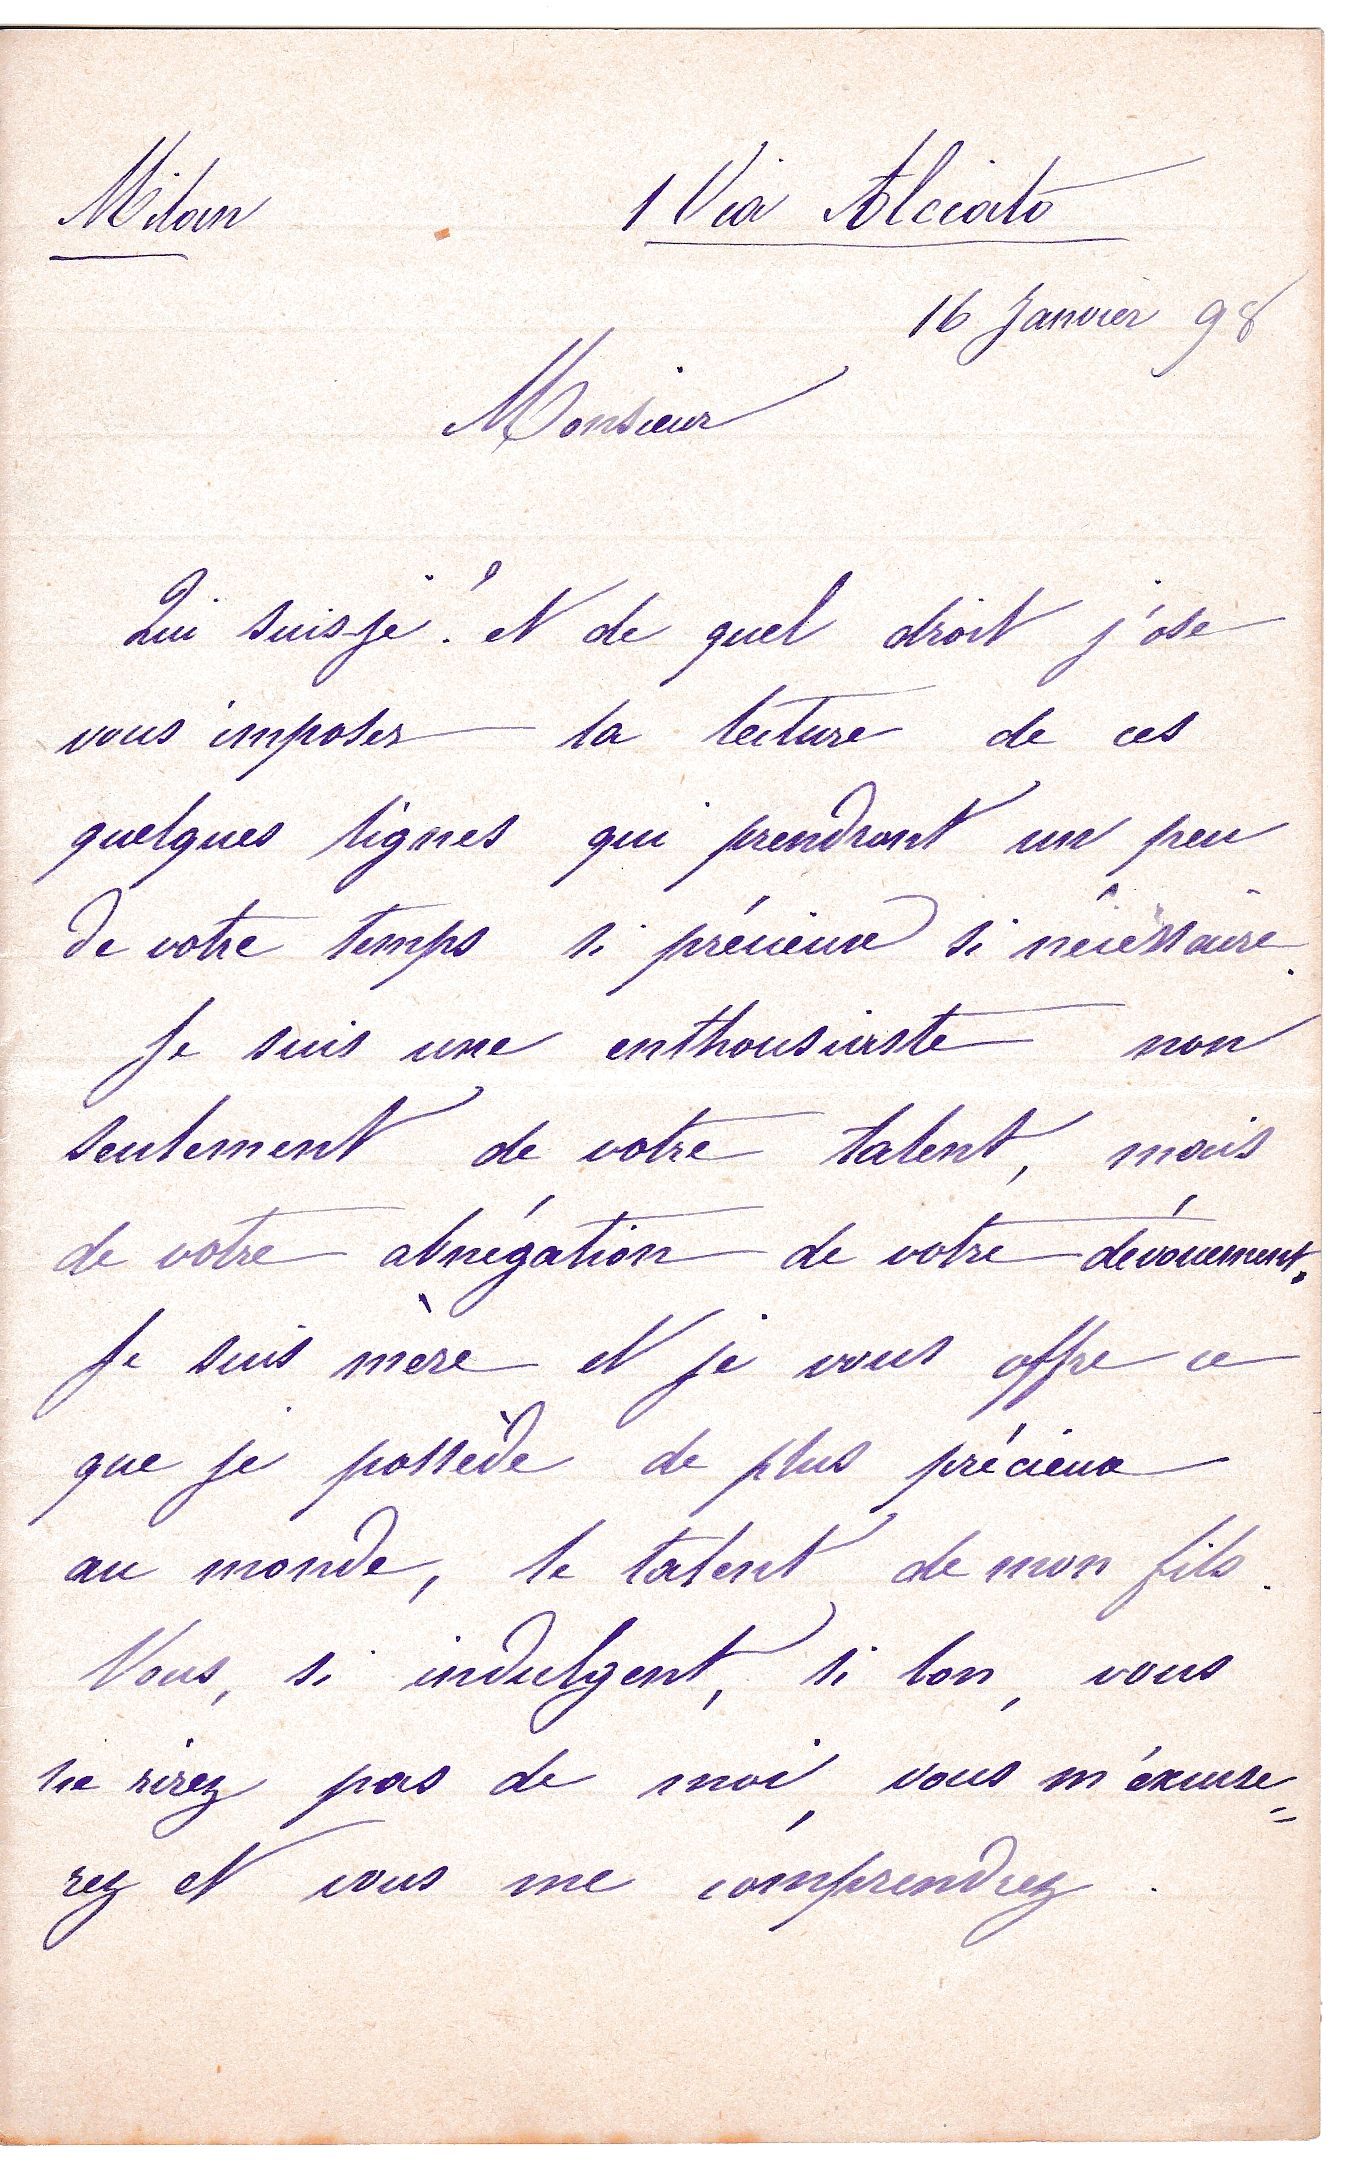 Milan 1 Via Alciato
16 Janvier 98
Monsieur
Qui suis-je? et de quel droit j'ose
vous imposer la lecture de ces
quelques lignes qui prendront un peu
de votre temps si précieux si nécessaire.
Je suis une enthousiaste non
seulement de votre talent, mais
de votre abnégation de votre dévouement.
Je suis mère et je vous offre ce
que je possède de plus précieux
au monde, le talent de mon fils.
Vous, si indulgent, si bon, vous
ne rirez pas de moi, vous m'excuse=
rez et vous me comprendrez.